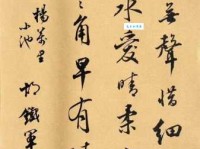 無聲惜細
水愛晴柔
角早有
楊萬里
小池
胡鐵軍